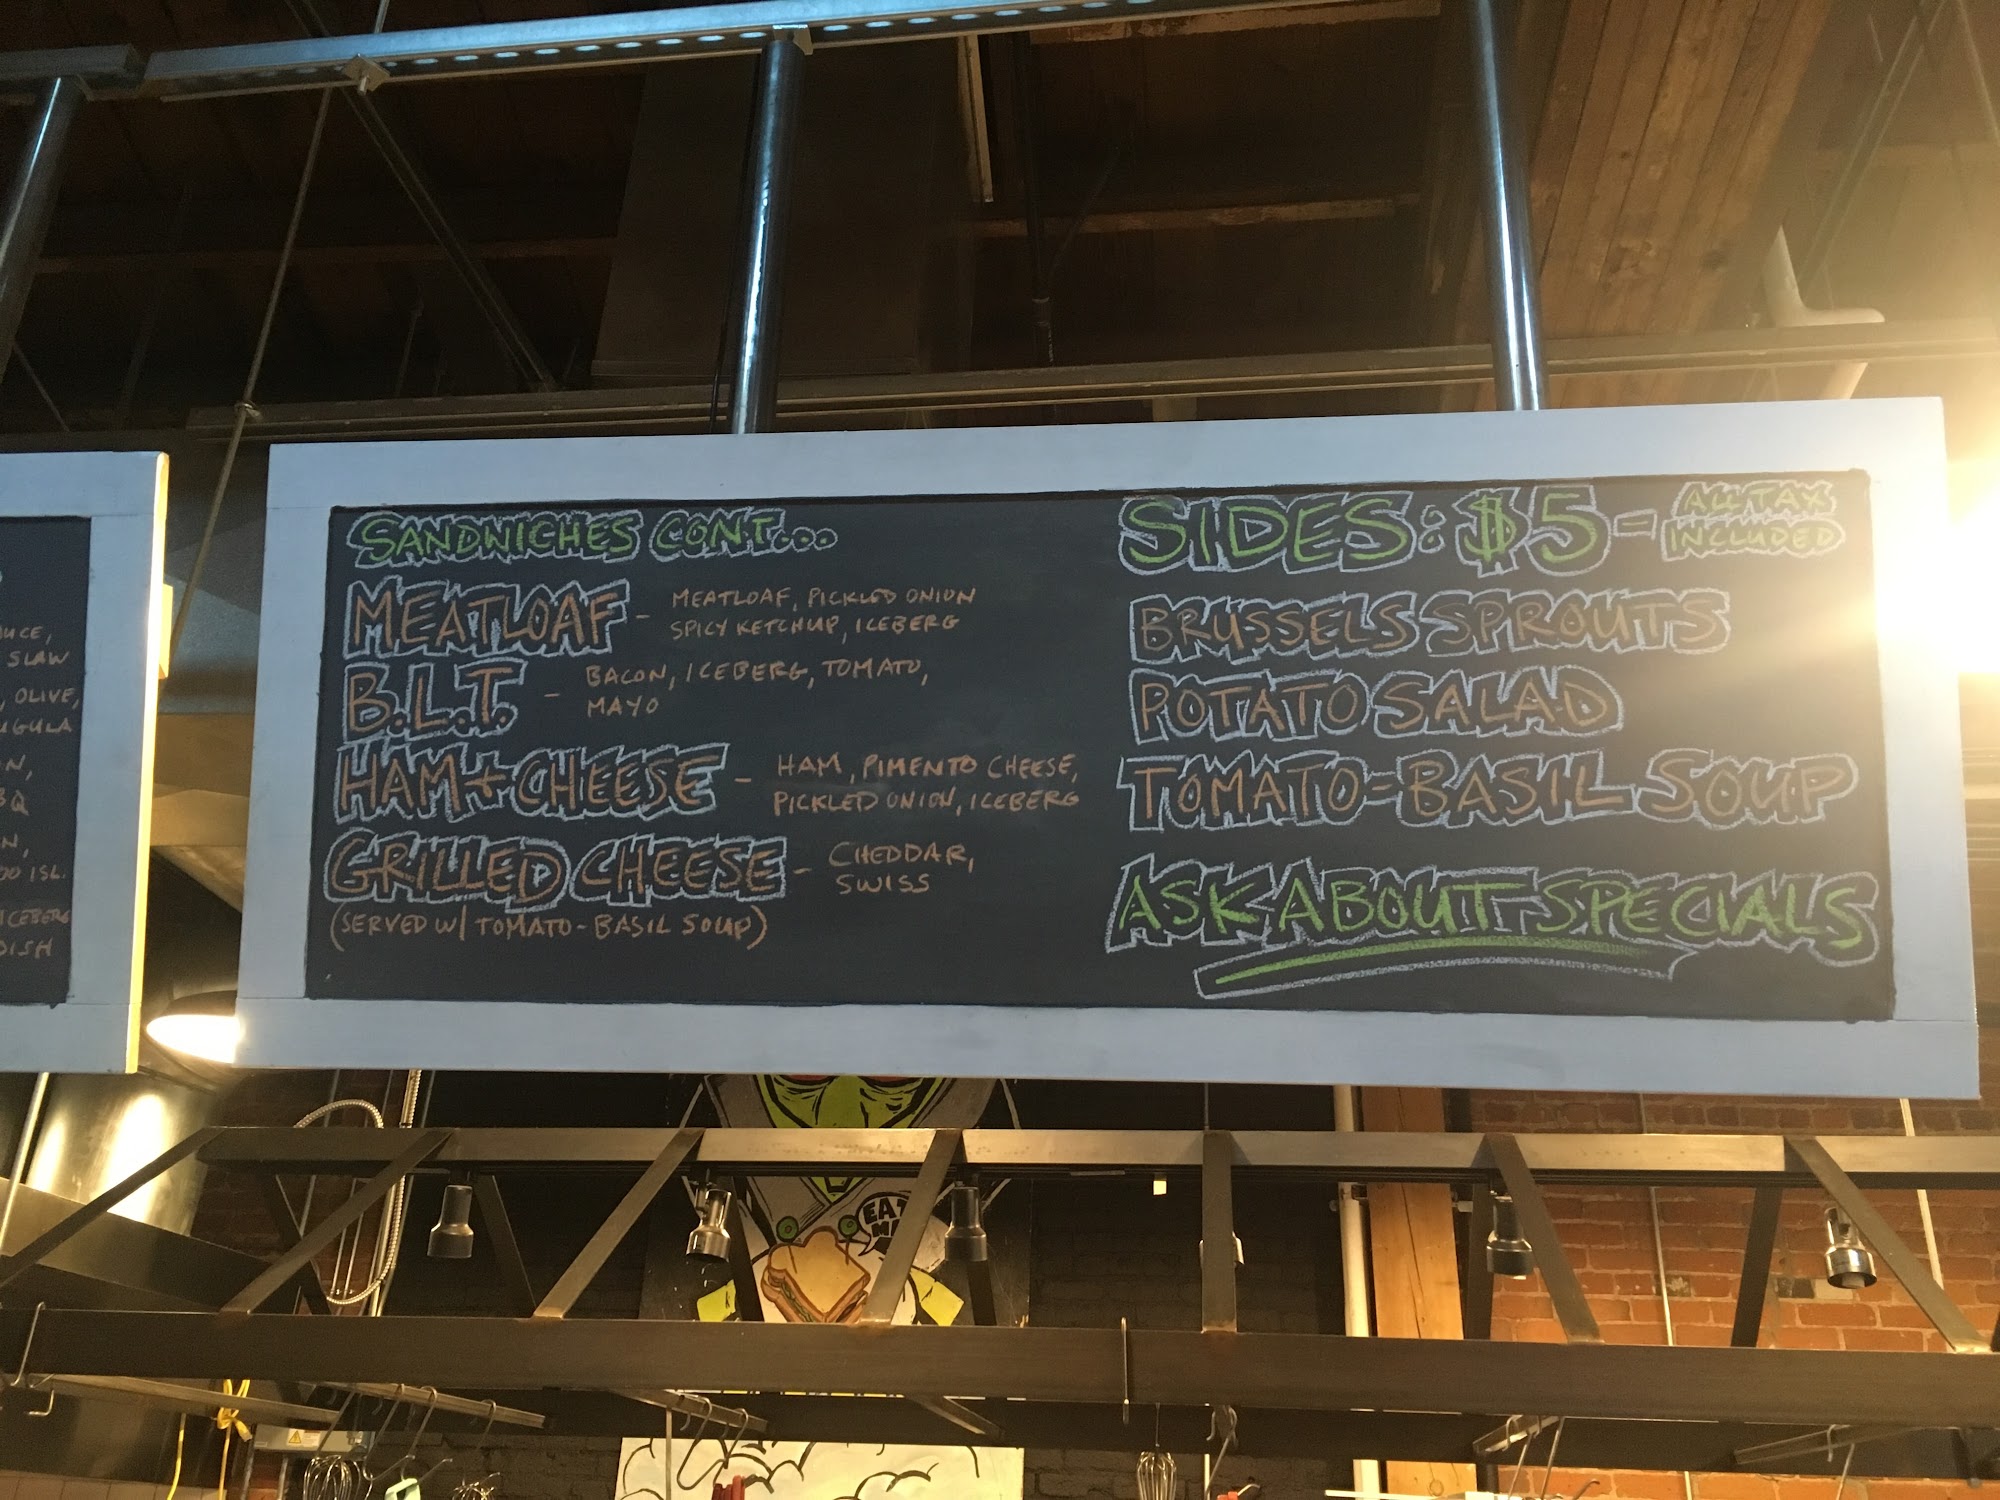 UCE,
SLAW
, OLIVE,
UGULA
N,
BQ
N,
OO ISL.
ICEBERG
DISH
SANDWICHES CONT...
MEATLOAF - MEATLOAF, PICKLED ONION
SPICY KETCHUP, ICEBERG
B.L.T. - BACON, ICEBERG, TOMATO,
MAYO
HAM + CHEESE - HAM, PIMENTO CHEESE,
PICKLED ONION, ICEBERG
GRILLED CHEESE - CHEDDAR,
SWISS
(SERVED W/ TOMATO-BASIL SOUP)
SIDES: $5 - ALL TAX
INCLUDED
BRUSSELS SPROUTS
POTATO SALAD
TOMATO-BASIL SOUP
ASK ABOUT SPECIALS
EAT